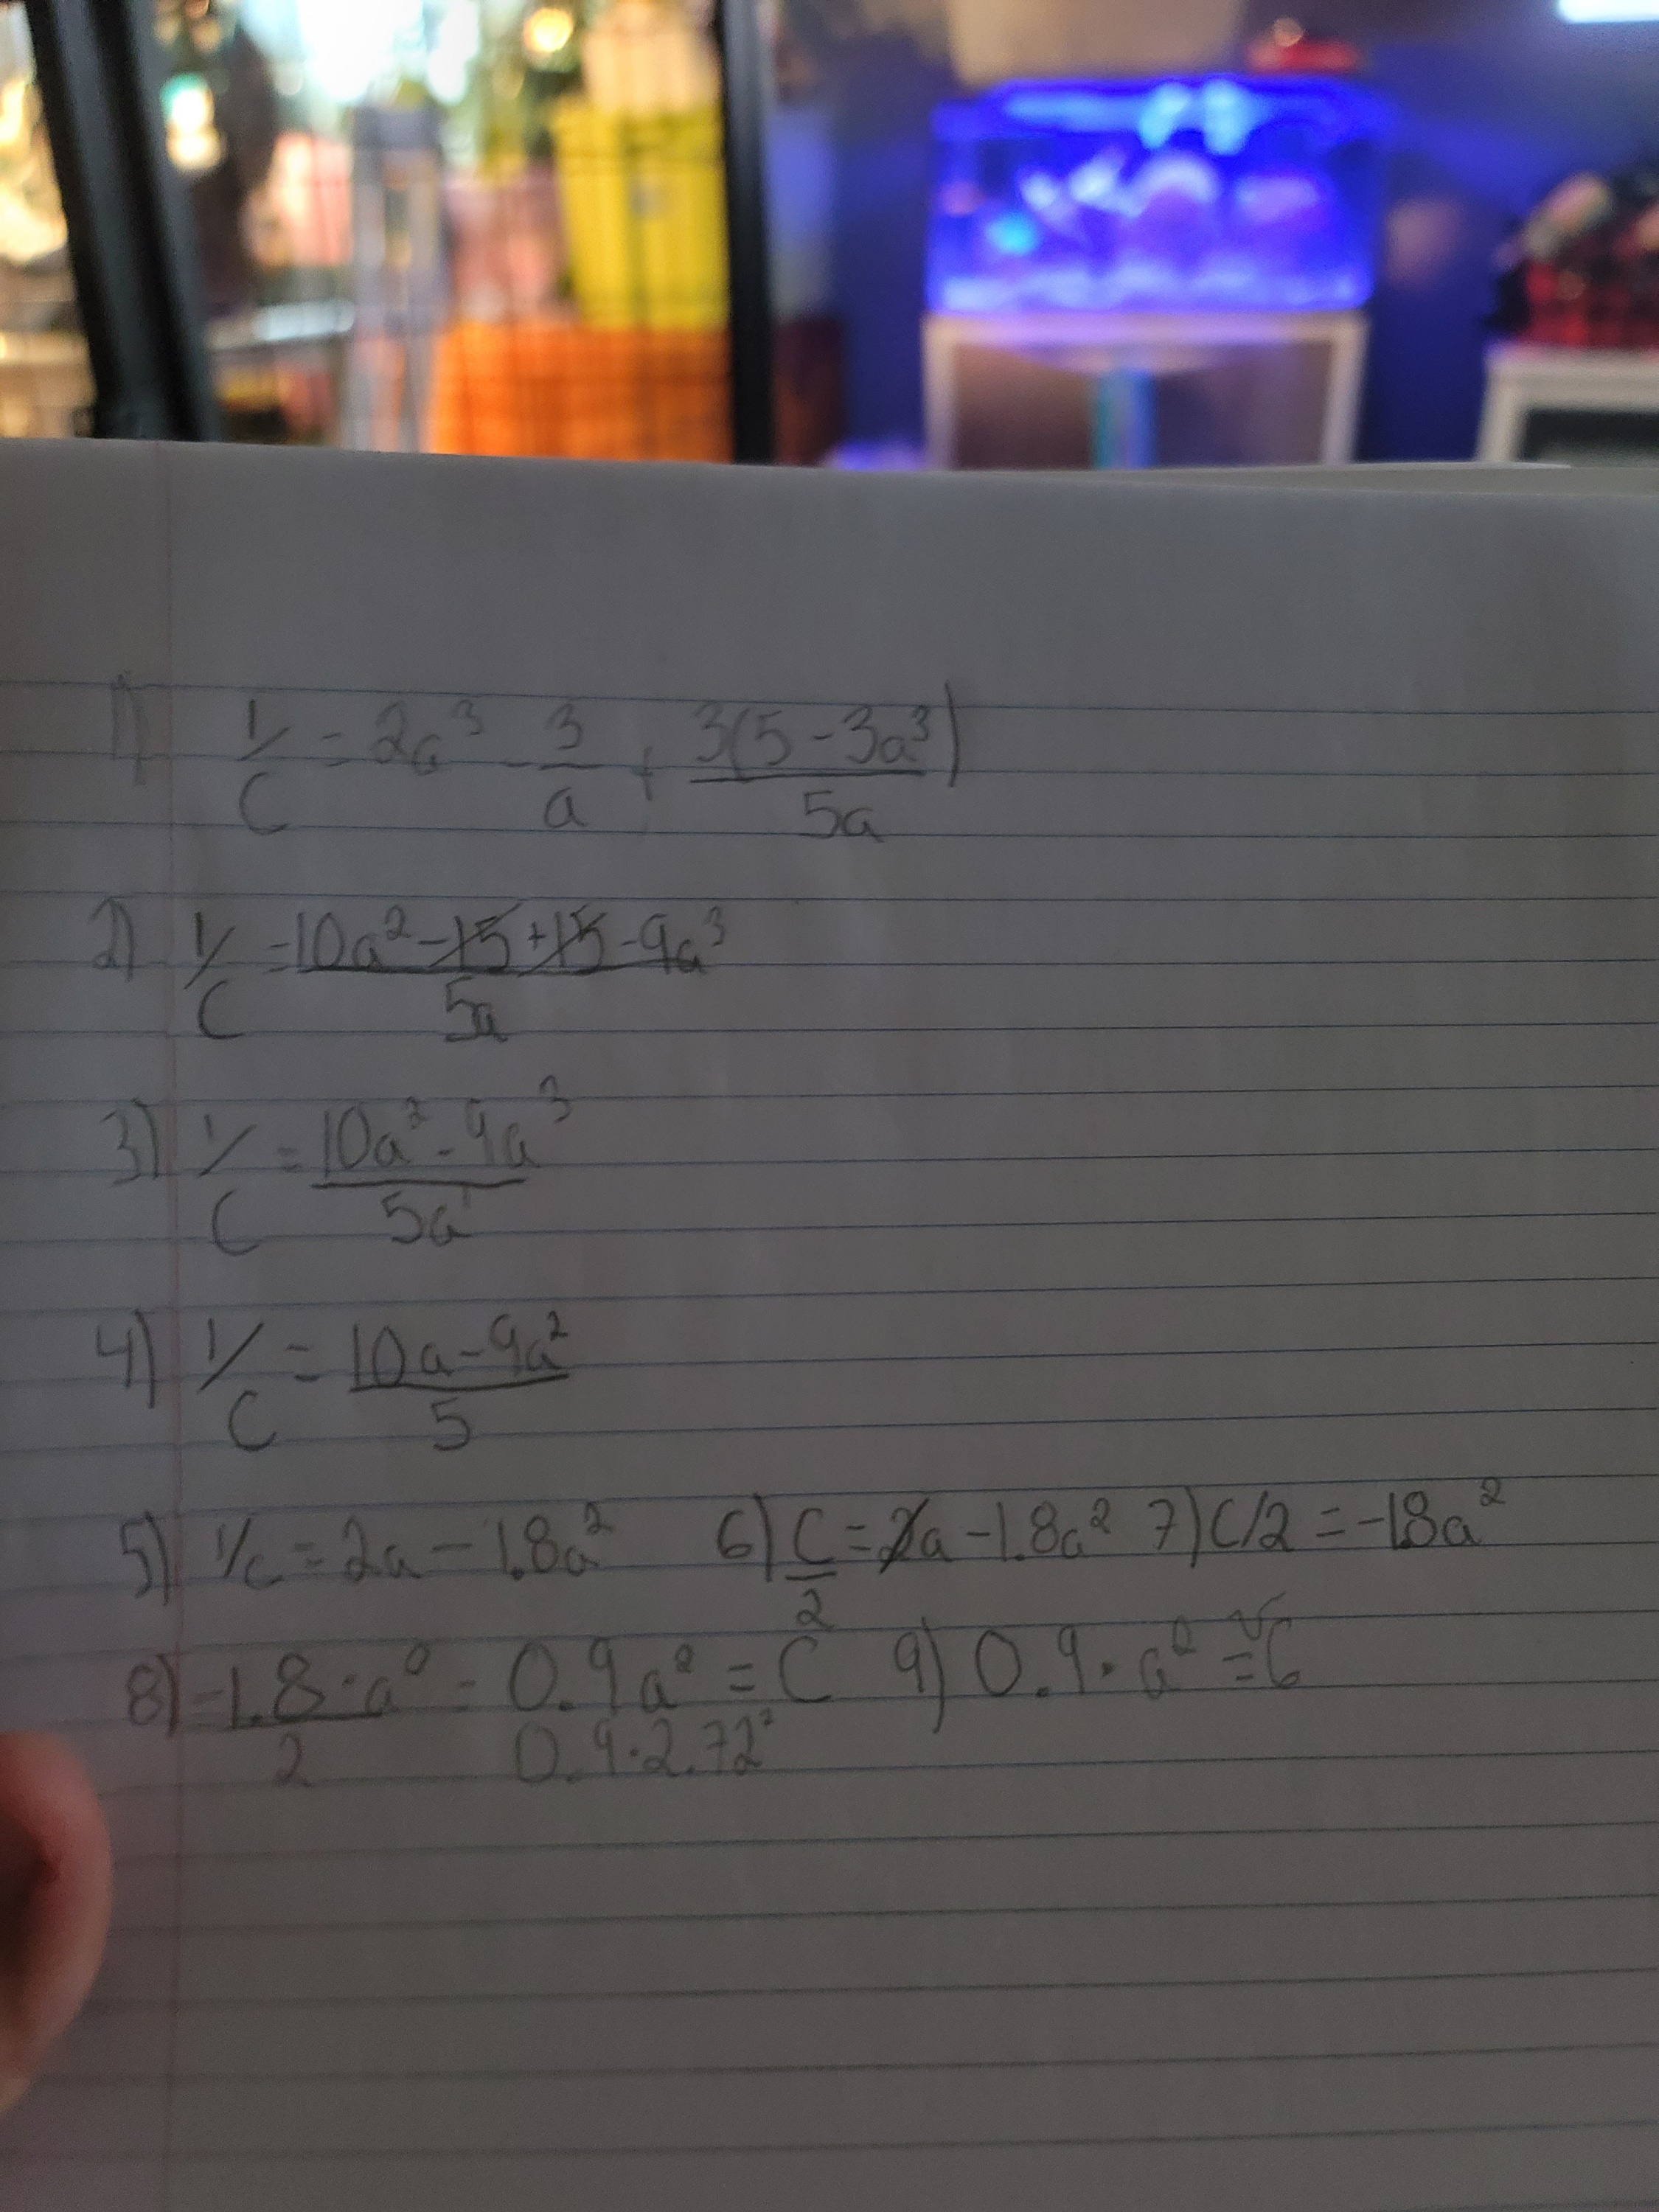 1) 1/C = 2a³ - 3/a + 3(5-3a³)/5a
2) 1/C = 10a² - 15 + 15 - 9a³/5a
3) 1/C = 10a² - 9a³/5a¹
4) 1/C = 10a - 9a²/5
5) 1/c = 2a - 1.8a² 6) C/2 = 2a - 1.8a² 7) C/2 = -1.8a²
8) -1.8·a²/2 = 0.9a² = C 9) 0.9·a² = C
0.9·2.72²